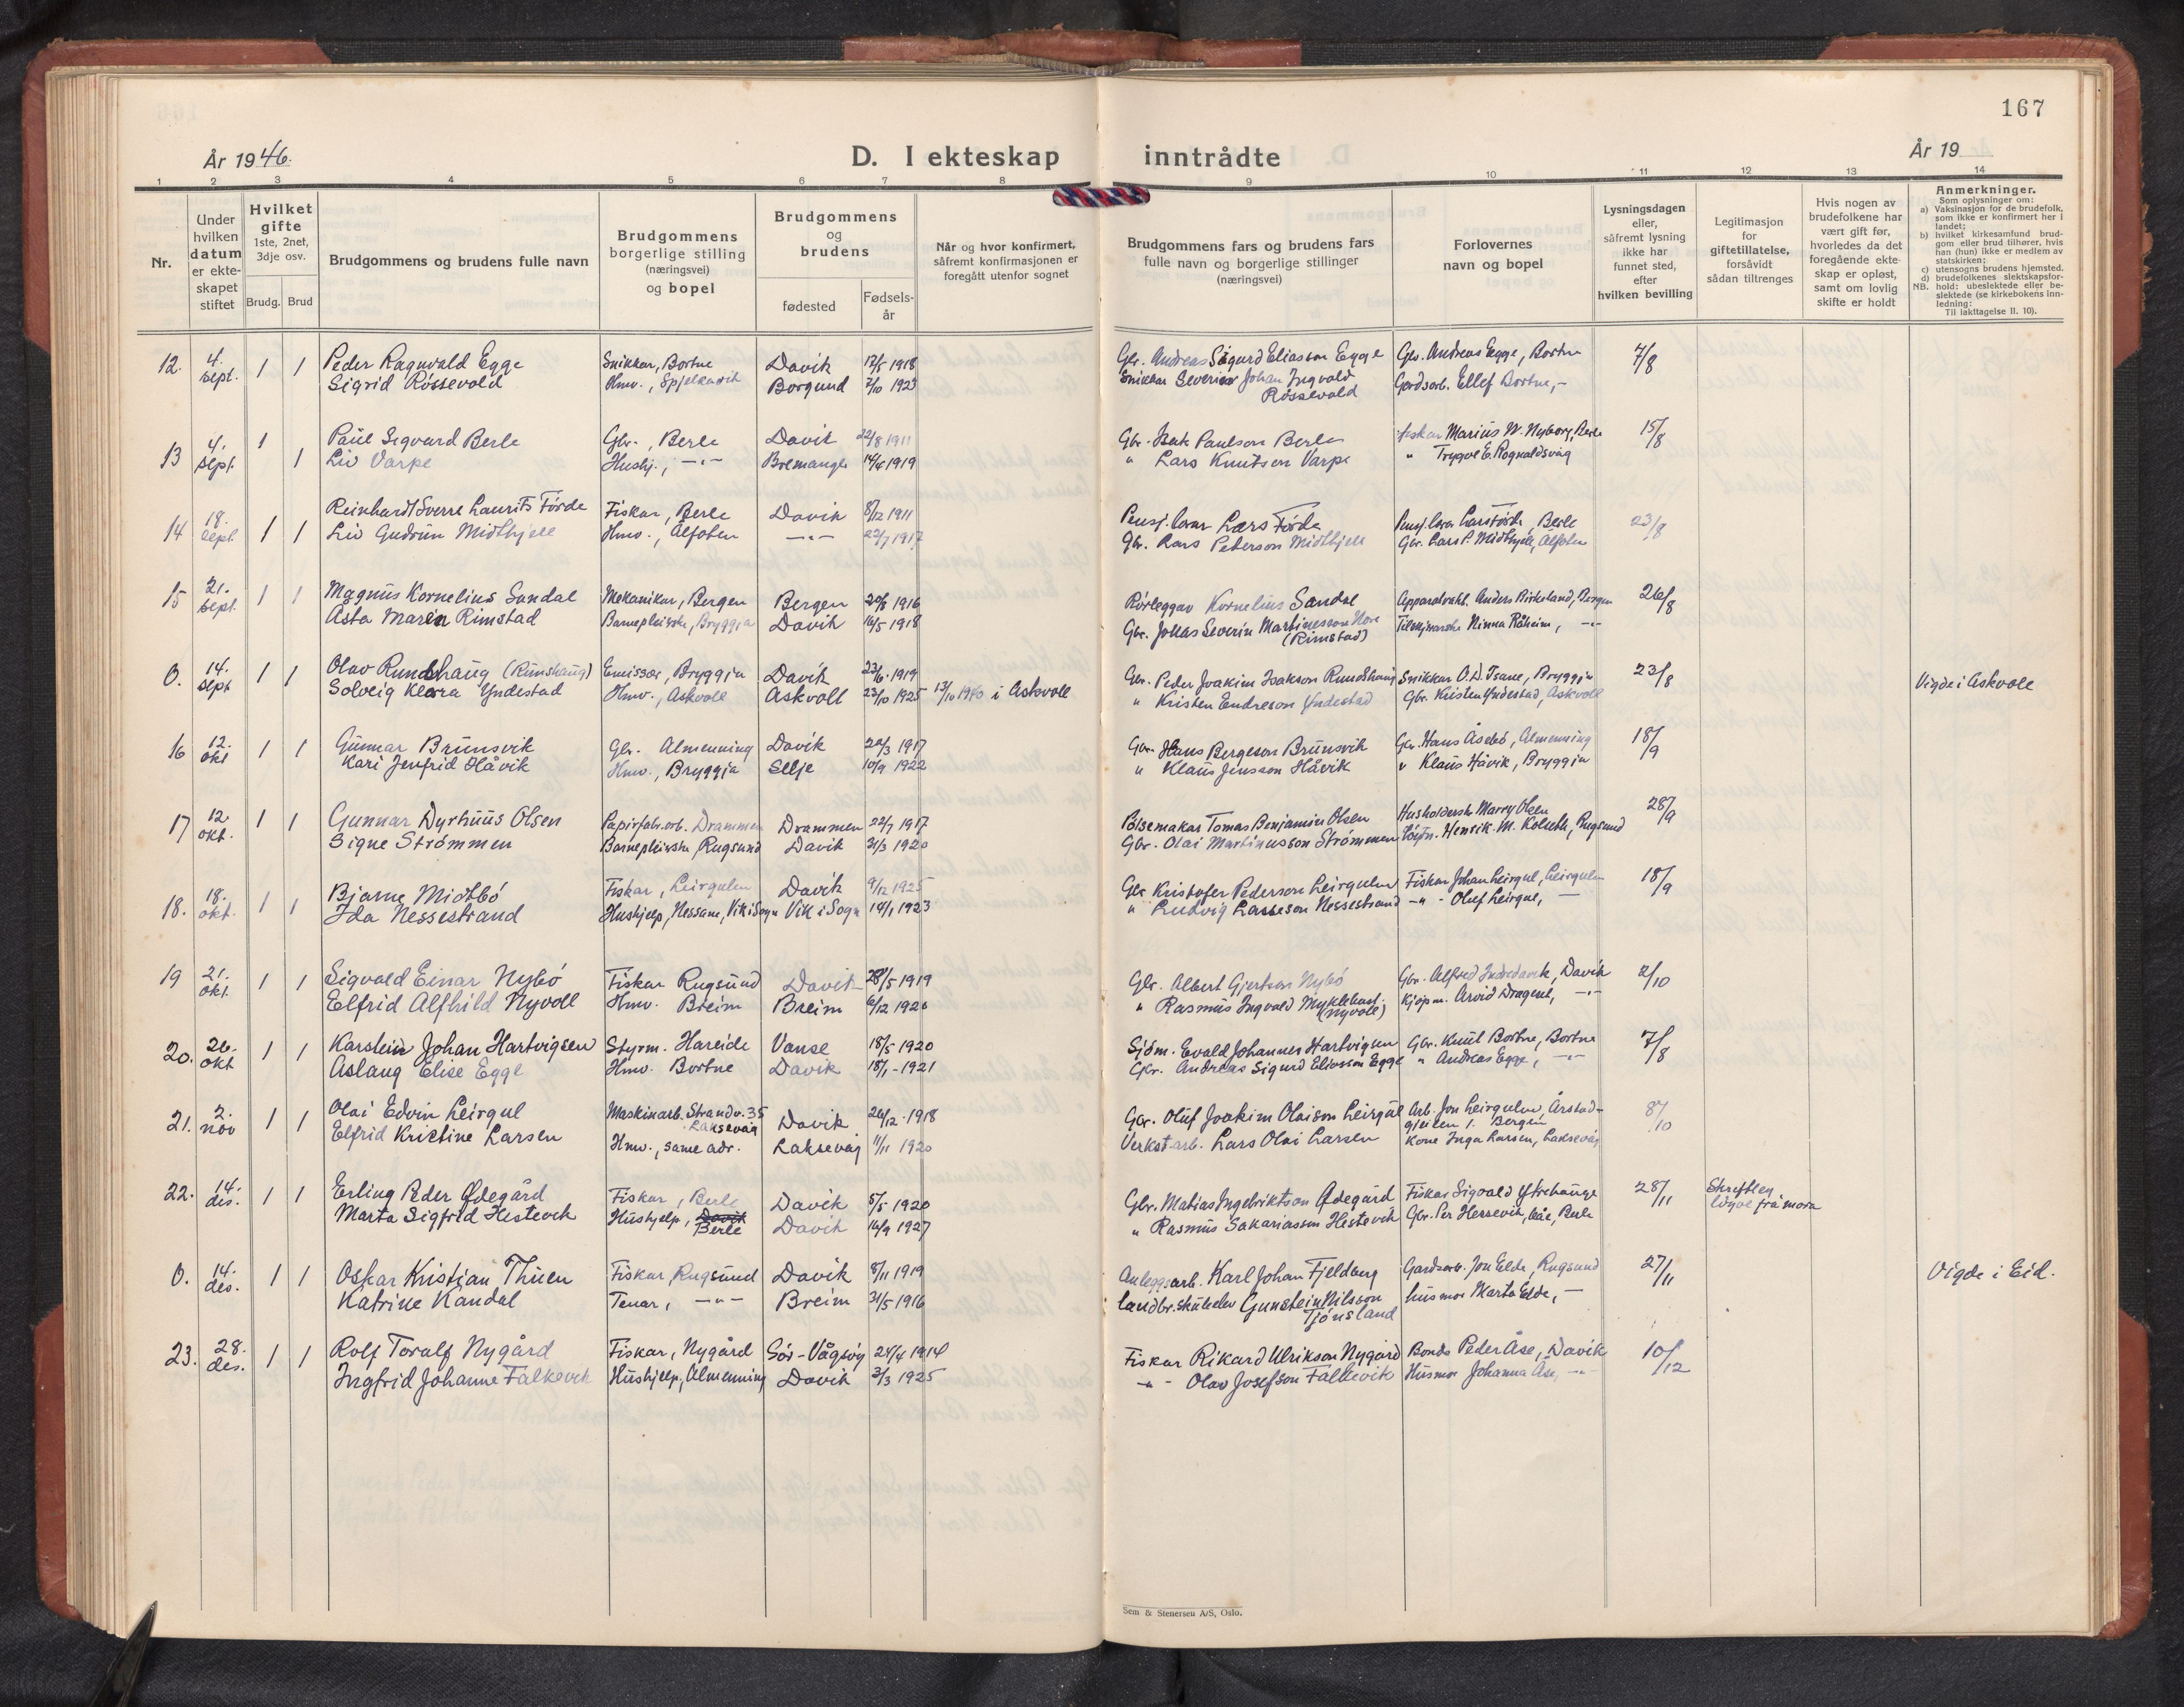 167
År 1946.
D. I ekteskap inntrådte
År 19
1 2 3 4 5 6 7 8 9 10 11 12 13 14
Nr.
Under hvilken datum er ekteskapet stiftet
Hvilket gifte 1ste, 2net, 3dje osv.
Brudg. Brud
Brudgommens og brudens fulle navn
Brudgommens borgerlige stilling (næringsvei) og bopel
Brudgommens og brudens
fødested
Fødselsår
Når og hvor konfirmert, såfremt konfirmasjonen er foregått utenfor sognet
Brudgommens fars og brudens fars fulle navn og borgerlige stillinger (næringsvei)
Forlovernes navn og bopel
Lysningsdagen eller, såfremt lysning ikke har funnet sted, efter hvilken bevilling
Legitimasjon for giftetillatelse, forsåvidt sådan tiltrenges
Hvis nogen av brudefolkene har vært gift før, hvorledes da det foregående ekteskap er opløst, samt om lovlig skifte er holdt
Anmerkninger.
Som oplysninger om:
a) Vaksinasjon for de brudefolk, som ikke er konfirmert her i landet;
b) hvilket kirkesamfund brudgom eller brud tilhører, hvis han (hun) ikke er medlem av statskirken;
c) utensogns brudens hjemsted.
d) brudefolkenes slektskapsforhold: ubeslektede eller beslektede (se kirkebokens innledning:
NB.
Til iakttagelse II. 10).
12. 4. sept. 1 1 Peder Ragnvald Egge Snikkar, Bortne Davik 12/5 1918 Gbr. Andreas Sigurd Eliasson Egge Gbr. Andreas Egge, Bortne 7/8
Sigrid Røssevold Hmv., Spjelkavik Borgund 7/10 1923 Snikkar Severin Johan Ingvald Røssevold Gardsarb. Ellef Bortne, -
13 4. sept. 1 1 Paul Sigvard Berle Gbr., Berle Davik 22/8 1911 Gbr. Isak Paulson Berle fiskar Marius W. Nyborg, Berle 15/8
Liv Varpe Hushj., -"- Bremanger 14/6 1919 " Lars Knutson Varpe " Trygve E. Rognaldsvåg
14 18. sept. 1 1 Reinhardt Sverre Laurits Førde Fiskar, Berle Davik 8/12 1911 Pensj. lærar Lars Førde Pensj. lærar Lars Førde, Berle 23/8
Liv Gudrun Midthjell Hmv., Ålfoten -"- 22/7 1917 Gbr. Lars Peterson Midthjell Gbr. Lars P. Midthjell, Ålfoten
15 21. sept. 1 1 Magnus Kornelius Sandal Mekanikar, Bergen Bergen 20/8 1916 Rørleggar Kornelius Sandal Apparatvakt. Anders Birkeland, Bergen 26/8
Åsta Marie Rimstad Barnepleierske, Bryggja Davik 16/5 1918 Gbr. Johas Severin Martinesson Nore (Rimstad) Ninna Råheim, -"-
0. 14. sept 1 1 Olav Rundshaug (Rimshaug) Emissær, Bryggja Davik 23/6 1919 Gbr. Peder Joakim Isakson Rundshaug Snikkar O. D. Tsane, Bryggja 23/8 Vigde i Askvoll
Solveig Klara Yndestad Hmv., Askvoll Askvoll 23/10 1925 13/10 1940 i Askvoll " Kristen Endreson Yndestad Gbr. Kristen Yndestad, Askvoll
16 12. okt 1 1 Gunnar Brunsvik Gbr. Almenning Davik 20/3 1917 Gbr. Hans Bergeson Brunsvik Gbr. Hans Åsebø, Almenning 18/9
Kari Jenfrid Håvik Hmv., Bryggja Selje 10/9 1922 " Klaus Jensson Håvik " Klaus Håvik, Bryggja
17 12 okt. 1 1 Gunnar Dyrhuus Olsen Papirfabr.arb. Drammen Drammen 22/7 1917 Pølsemakar Tomas Benjamin Olsen Husholderske Marry Olsen 28/9
Signe Strømmen Barnepleierske Rugsund Davik 31/3 1920 Gbr. Olai Martinusson Strømmen Løytn. Henrik M. Kolseth, Rugsund
18. 18. okt. 1 1 Bjarne Midtbø Fiskar, Leirgulen Davik 9/12 1925 Gbr Kristofer Pederson Leirgulen Fiskar Johan Leirgul, Leirgulen 18/9
Ida Nessestrand Hushjelp, Nessane, Vik i Sogn Vik i Sogn 14/1 1923 " Ludvig Lasseson Nessestrand -"- Oluf Leirgul, -
19 21. okt. 1 1 Sigvald Einar Nybø Fiskar Rugsund Davik 28/5 1919 Gbr. Albert Gjertson Nybø Gbr. Alfred Indredavik, Davik 2/10
Elfrid Alfhild Nyvoll Hmv. Breim Breim 6/12 1920 " Rasmus Ingvald Myklebust (Nyvoll) Kjøpm. Arvid Dragesel, -"-
20. 26. okt 1 1 Karstein Johan Hartvigsen Styrm. Hareide Vanse 18/5 1920 Sjøm. Evald Johannes Hartvigsen Gbr. Knut Bortne, Bortne 7/8
Aslaug Elise Egge Hmv. Bortne Davik 18/1 - 1921 Gbr. Andreas Sigurd Eliasson Egge " Andreas Egge, -"-
21. 2. nov 1 1 Olai Edvin Leirgul Maskinarb. Strandv. 35 Laksevåg Davik 26/12 1918 Gbr. Oluf Joakim Olaison Leirgul Arb. Jon Leirgulen, Årstad- 8/10
Elfrid Kristine Larsen Hmv., same adr. Laksevåg 11/11 1920 Verkst.arb. Lars Olai Larsen Kone Inga Larsen, Laksevåg
22. 14. des. 1 1 Erling Peder Ødegård Fiskar, Berle Davik 5/5 1920 Gbr. Matias Ingebriktson Ødegård Fiskar Sigvald Ytrehauge 28/11 Skriftleg løyve frå mora
Marta Sigfrid Hestevik Hushjelp, Davik Berle Davik 16/9 1927 " Rasmus Sakariasson Hestevik Gbr. Per Hessevik, Berle
0. 14. des. 1 1 Oskar Kristian Thuen Fiskar, Rugsund Davik 8/11 1919 Anleggsarb. Karl Johan Fjeldberg Gardsarb. Jon Elde, Rugsund 27/11 Vigde i Eid.
Katrine Kandal Tenar, -"- Breim 31/5 1916 Landbr.skuleelev Gunstein Nilsson Tjønsland husmor Marta Elde, -
23. 28. des. 1 1 Rolf Toralf Nygård Fiskar, Nygård Sør-Vågsøy 24/4 1914 Fiskar Rikard Ulrikson Nygård Bonde Peder Åse, Davik 10/12
Ingfrid Johanne Falkevik Hushjelp, Almenning Davik 3/3 1925 -"- Olav Josefson Falkevik Husmor Johanna Åse, -"-
Sem & Stenersen A/S, Oslo.